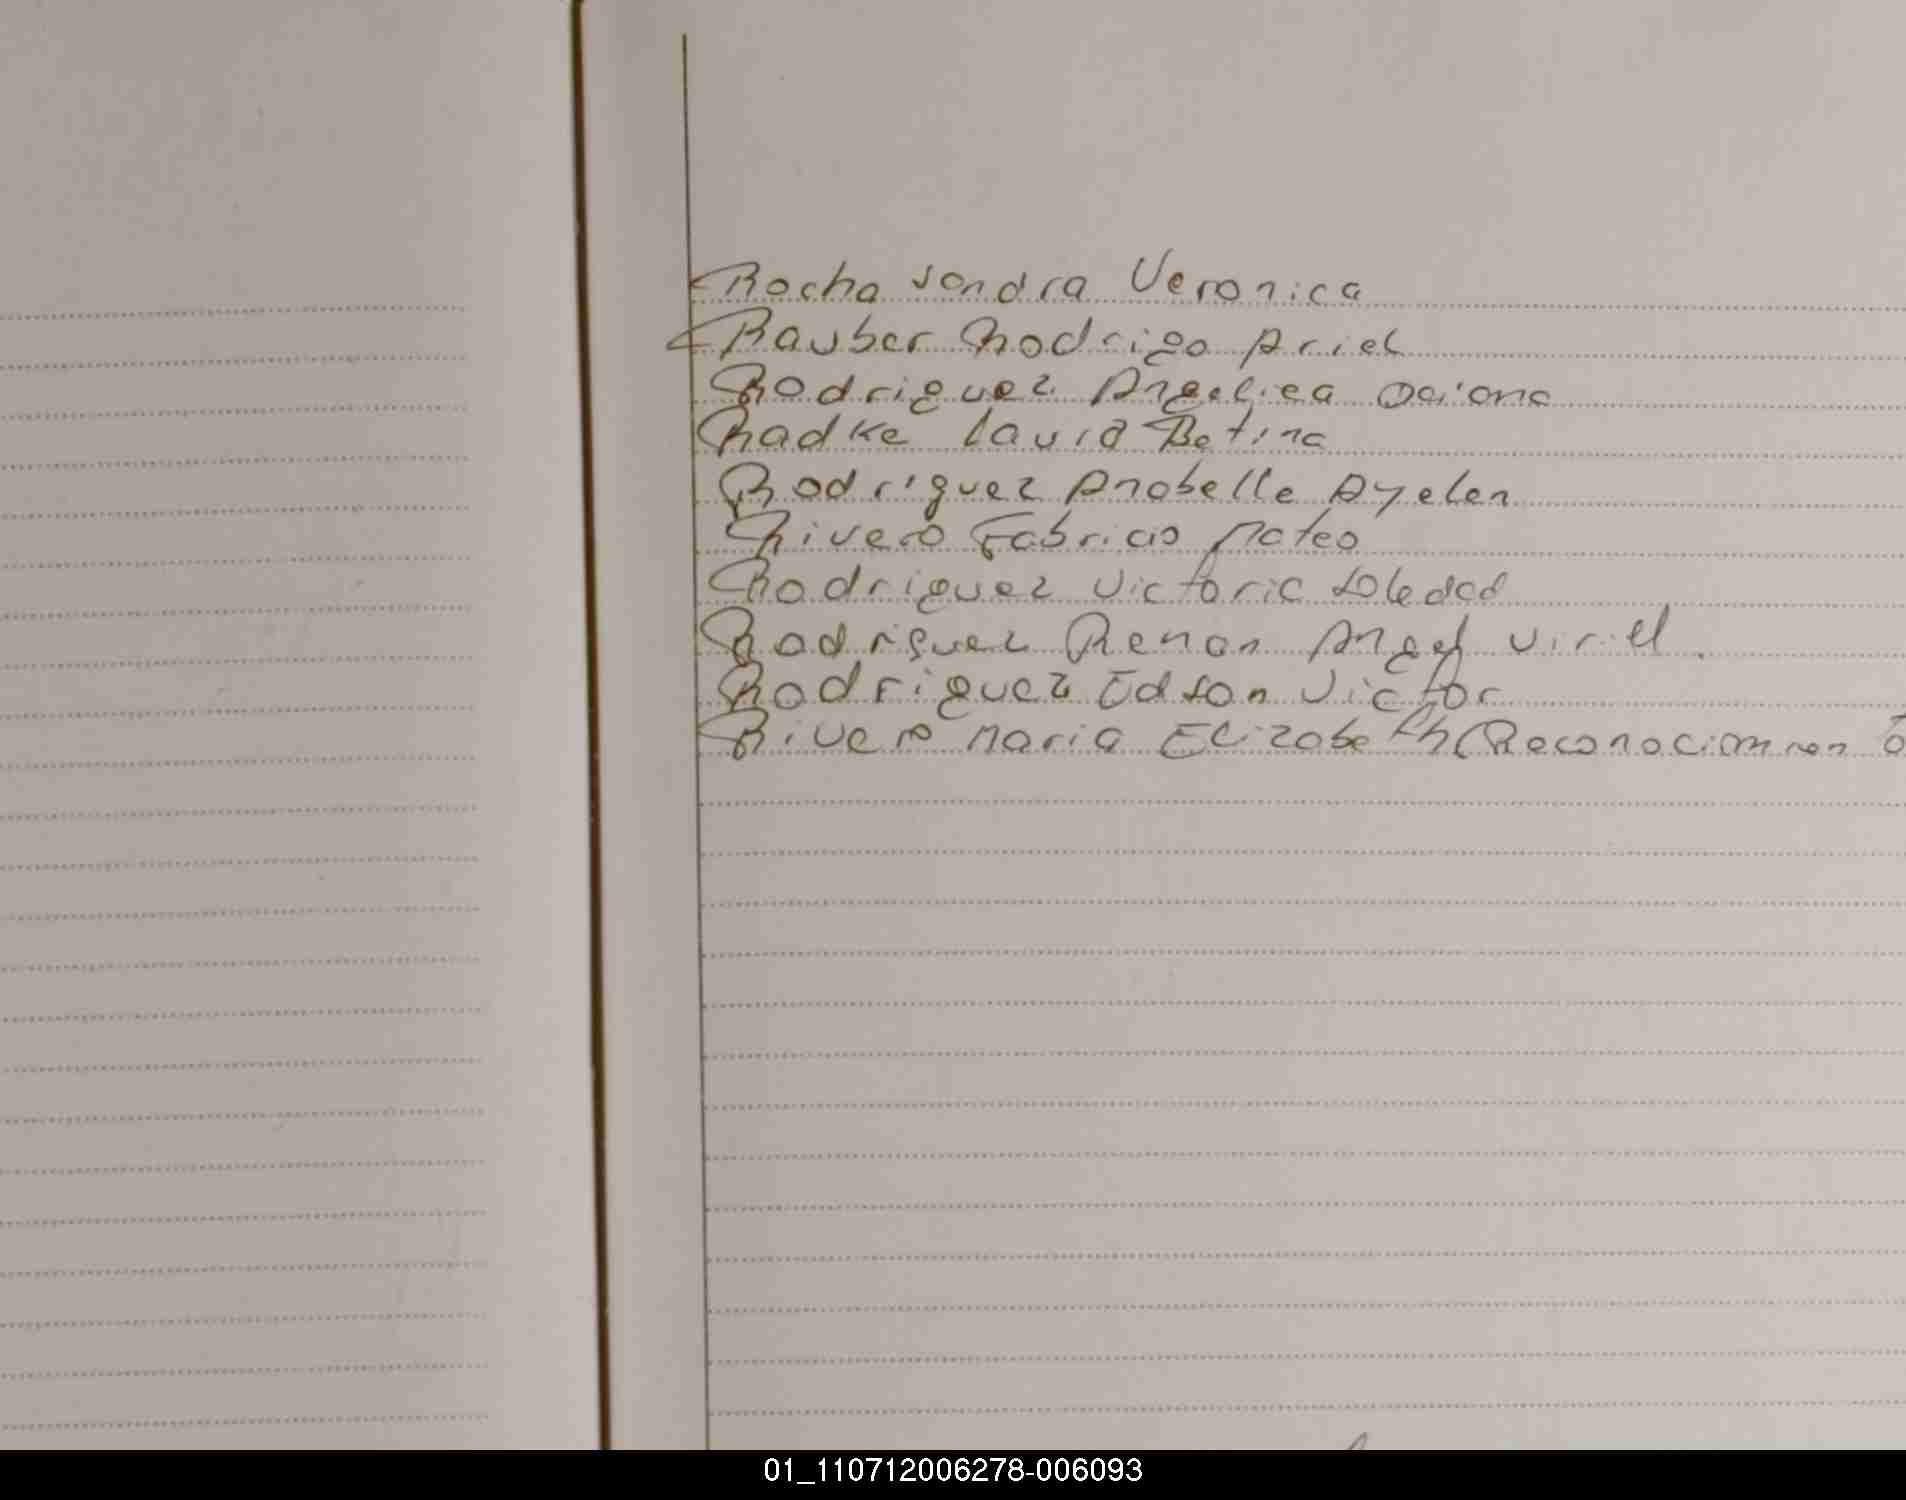 Rocha Sandra Veronica
Rauber Rodrigo Ariel
Rodriguez Angelica Daiana
Radke Laura Betina
Rodriguez Anabelle Ayelen
Rivero Fabricio Mateo
Rodriguez Victoria Soledad
Rodriguez Renan Angel
Rodriguez Edson Victor
Rivero Maria Elizabeth (Reconocimiento
01_110712006278-006093